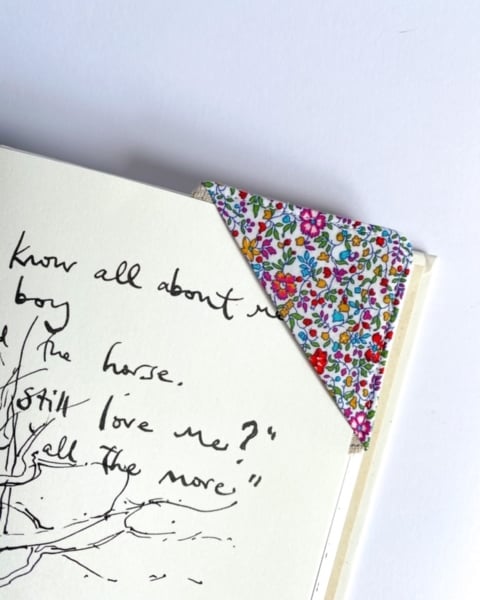 know all about me
boy
the horse.
still love me?"
all the more"